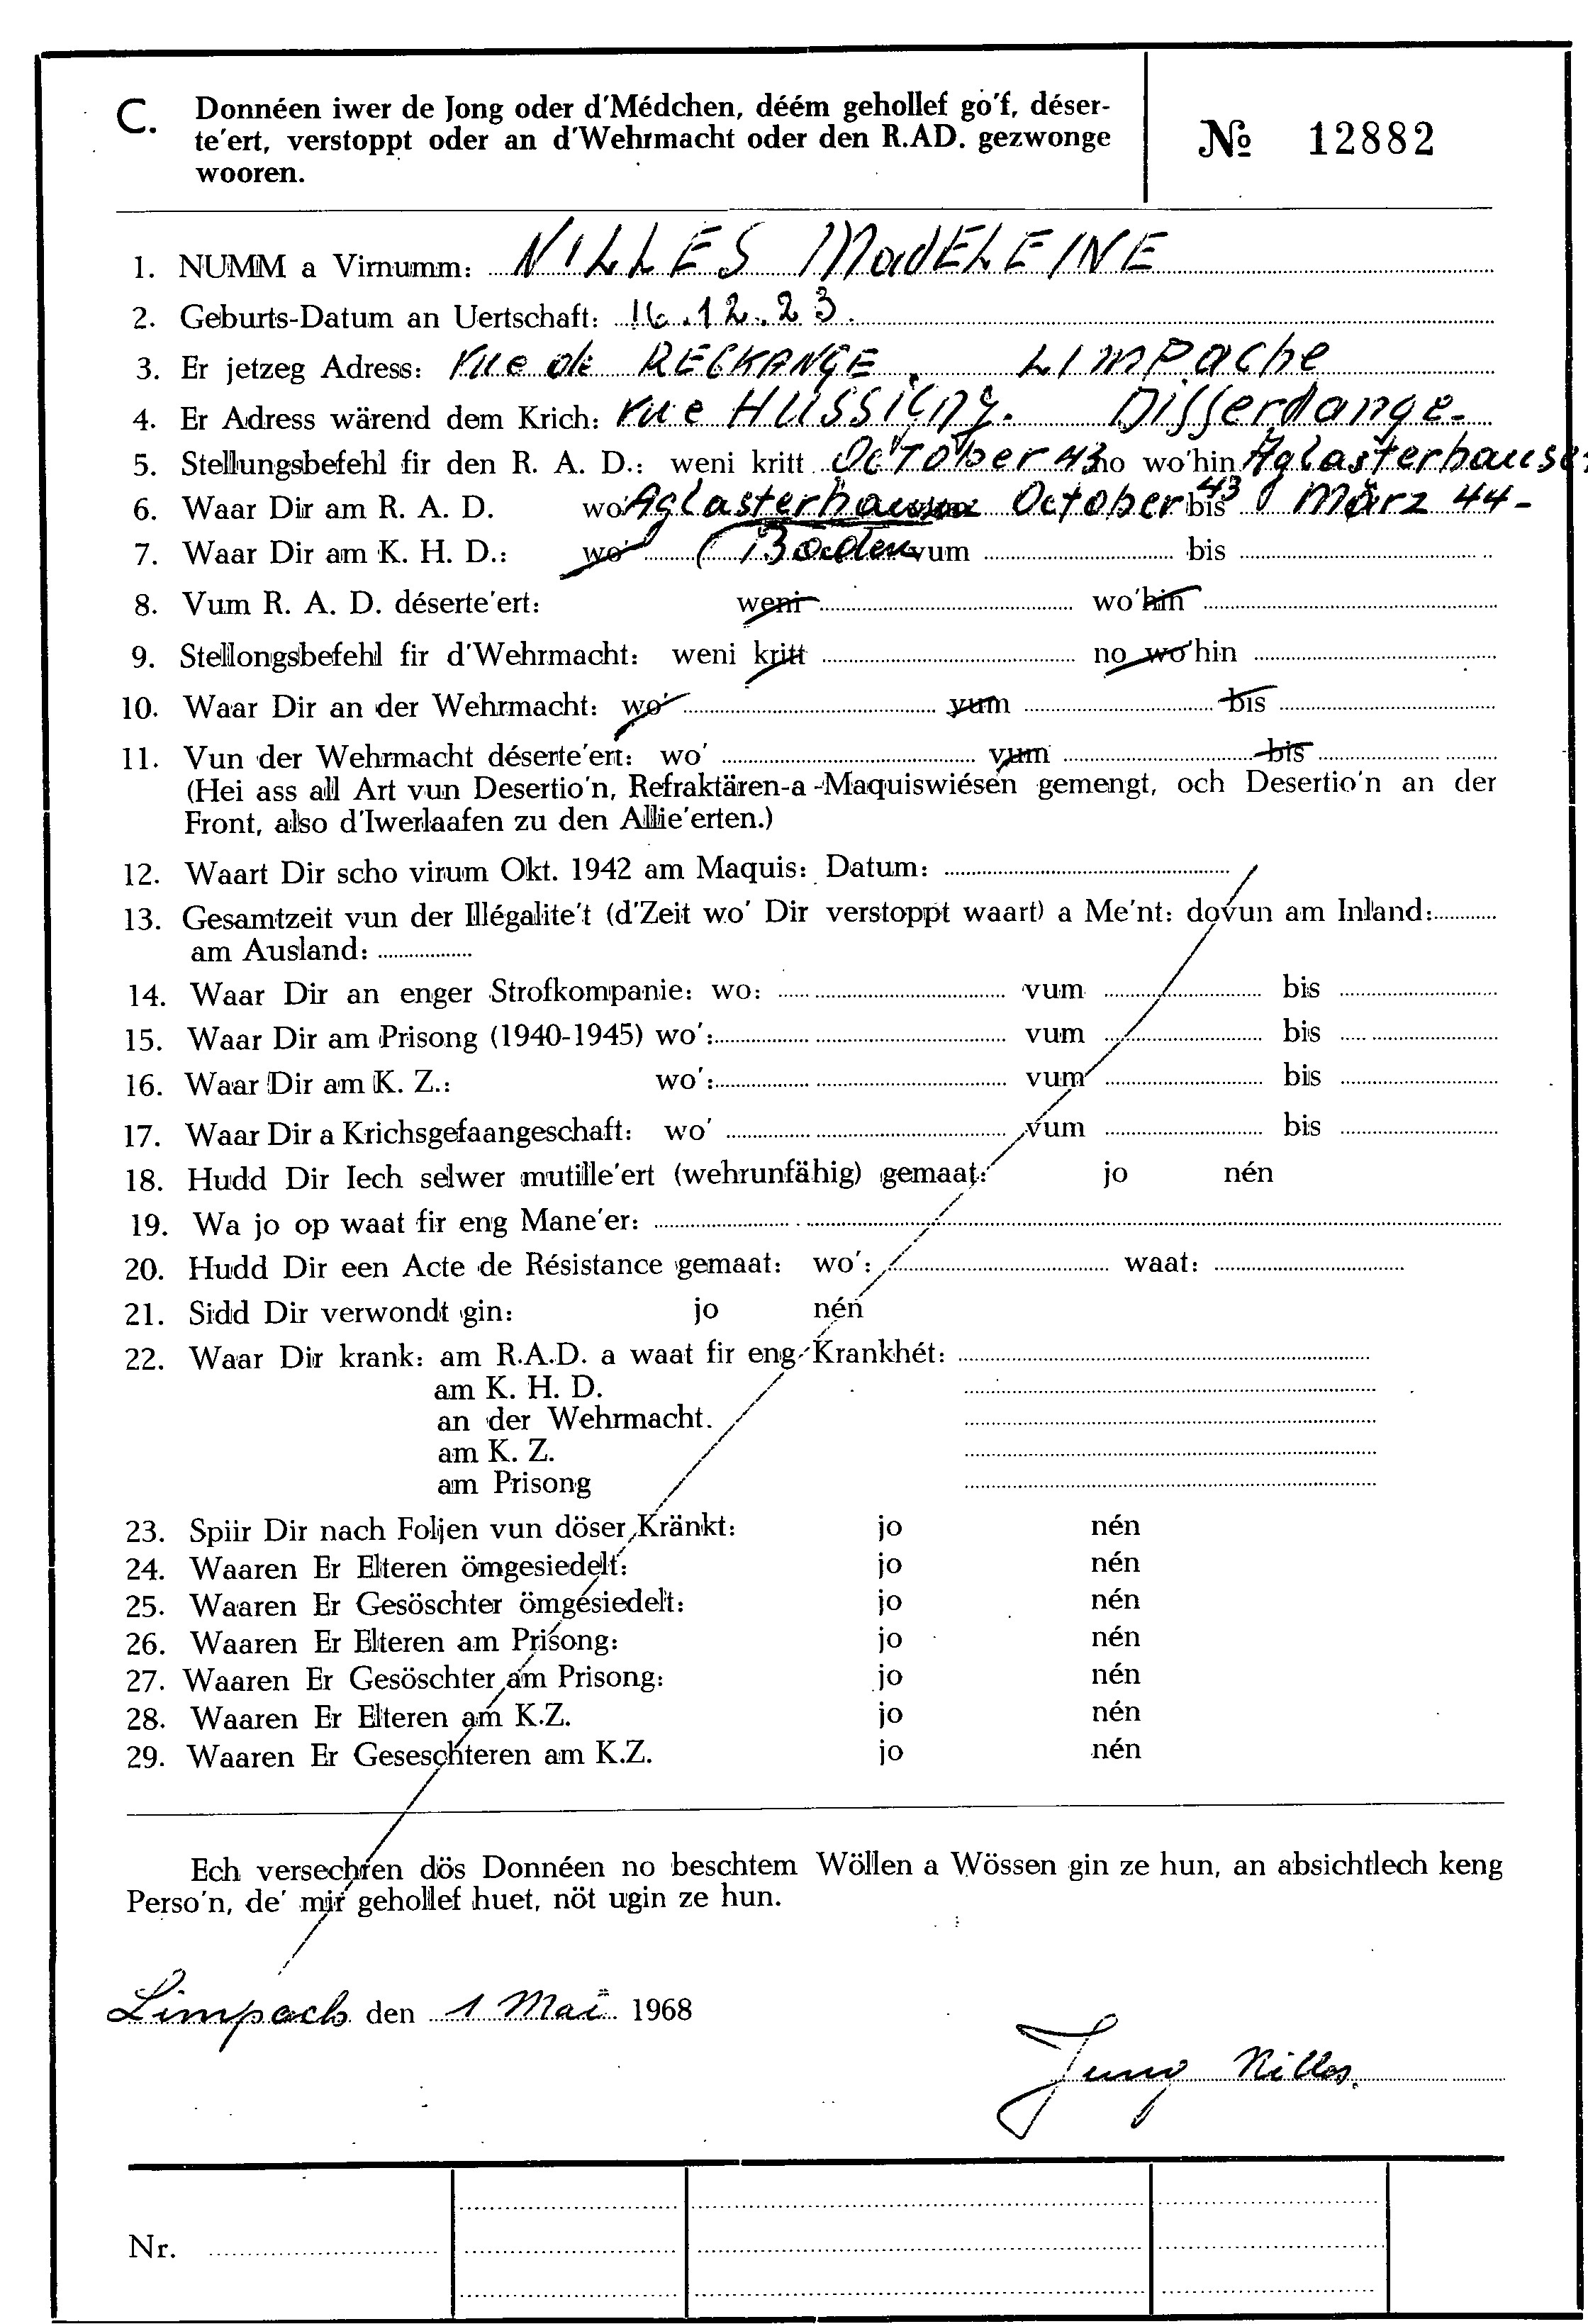 C. Donnéen iwer de Jong oder d'Médchen, déém gehollef go'f, déser-
te'ert, verstoppt oder an d'Wehrmacht oder den R.AD. gezwonge
wooren.
№ 12882
1. NUMM a Virnumm: NILLES MadELEINE
2. Geburts-Datum an Uertschaft: 16.12.23.
3. Er jetzeg Adress: rue de RECKANGE. LIMPache
4. Er Adress wärend dem Krich: rue HUSSIGNY. Differdange-
5. Stellungsbefehl fir den R. A. D.: weni kritt OcTober 43 no wo'hin Aglasterhausen
6. Waar Dir am R. A. D. wo' Aglasterhausen October 43 bis März 44-
7. Waar Dir am K. H. D.: wo' (Baden vum bis
8. Vum R. A. D. déserte'ert: weni wo'hin
9. Stellongsbefehl fir d'Wehrmacht: weni kritt no wo'hin
10. Waar Dir an der Wehrmacht: wo' vum bis
11. Vun der Wehrmacht déserte'ert: wo' vum bis
(Hei ass all Art vun Desertio'n, Refraktären-a-Maquiswiésen gemengt, och Desertio'n an der
Front, also d'Iwerlaafen zu den Allie'erten.)
12. Waart Dir scho virum Okt. 1942 am Maquis: Datum:
13. Gesamtzeit vun der Illégalite't (d'Zeit wo' Dir verstoppt waart) a Me'nt: dovun am Inland:
am Ausland:
14. Waar Dir an enger Strofkompanie: wo: vum bis
15. Waar Dir am Prisong (1940-1945) wo': vum bis
16. Waar Dir am K. Z.: wo': vum bis
17. Waar Dir a Krichsgefaangeschaft: wo' vum bis
18. Hudd Dir Iech selwer mutille'ert (wehrunfähig) gemaat: jo nén
19. Wa jo op waat fir eng Mane'er:
20. Hudd Dir een Acte de Résistance gemaat: wo': waat:
21. Sidd Dir verwondt gin: jo nén
22. Waar Dir krank: am R.A.D. a waat fir eng Krankhét:
am K. H. D.
an der Wehrmacht.
am K. Z.
am Prisong
23. Spiir Dir nach Foljen vun döser Kränkt: jo nén
24. Waaren Er Elteren ömgesiedelt: jo nén
25. Waaren Er Gesöschter ömgesiedelt: jo nén
26. Waaren Er Elteren am Prisong: jo nén
27. Waaren Er Gesöschter am Prisong: jo nén
28. Waaren Er Elteren am K.Z. jo nén
29. Waaren Er Geseschteren am K.Z. jo nén
Ech versechren dös Donnéen no beschtem Wöllen a Wössen gin ze hun, an absichtlech keng
Perso'n, de' mir gehollef huet, nöt ugin ze hun.
Limpach den 1 Mai 1968
Jung Nilles.
Nr.